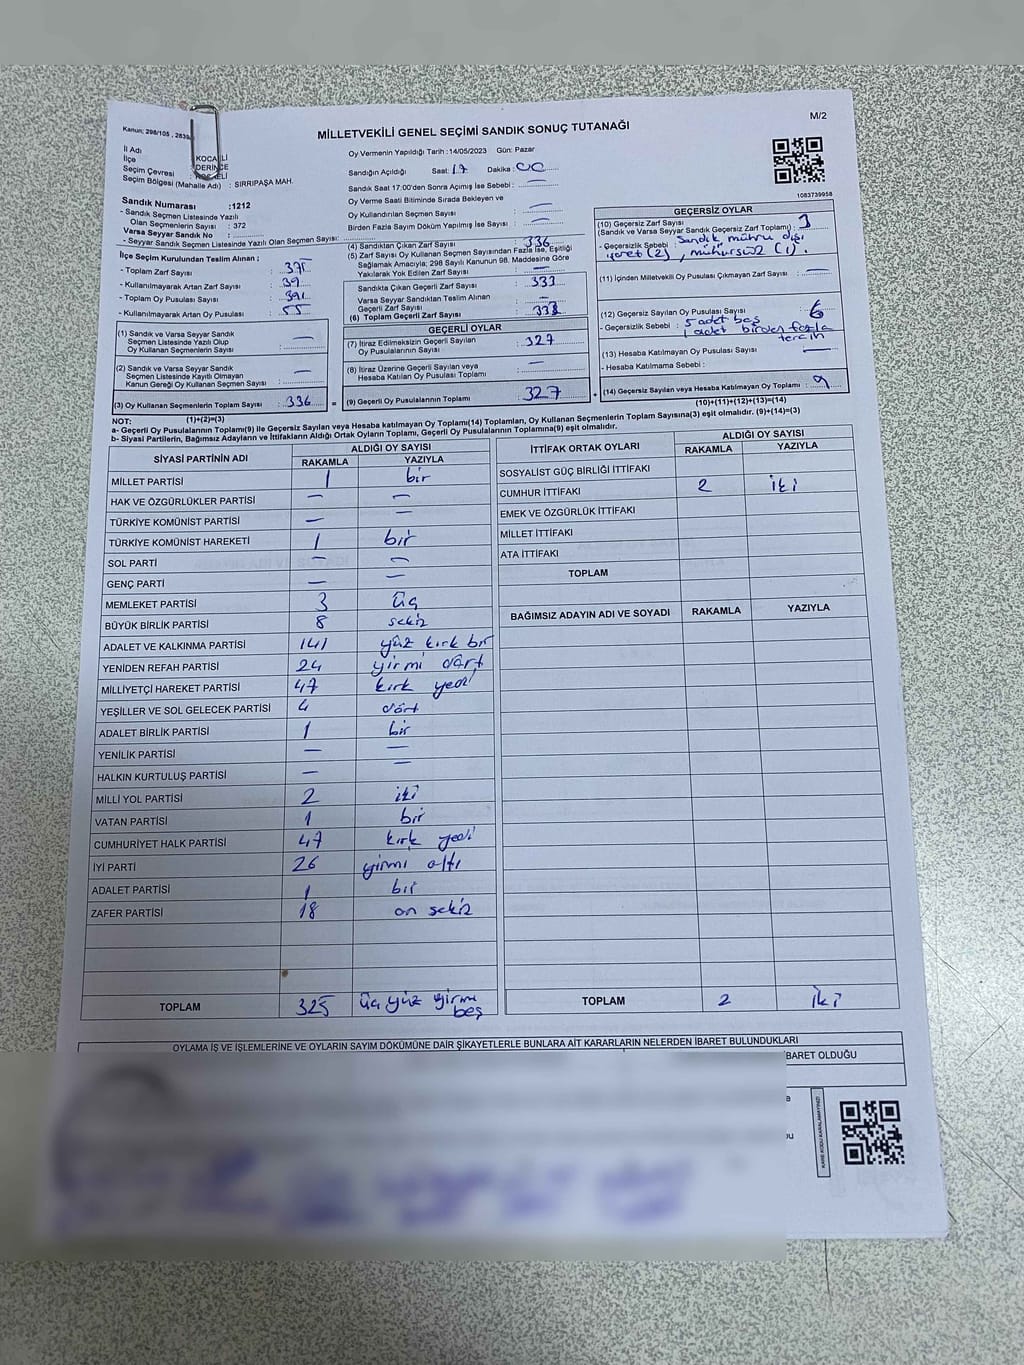 M/2
Kanun: 298/105 , 2839
MİLLETVEKİLİ GENEL SEÇİMİ SANDIK SONUÇ TUTANAĞI
İl Adı KOCAELİ
İlçe DERİNCE
Seçim Çevresi : KOCAELİ
Seçim Bölgesi (Mahalle Adı) : SIRRIPAŞA MAH.
Sandık Numarası :1212
- Sandık Seçmen Listesinde Yazılı
Olan Seçmenlerin Sayısı : 372
Varsa Seyyar Sandık No :
- Seyyar Sandık Seçmen Listesinde Yazılı Olan Seçmen Sayısı:
İlçe Seçim Kurulundan Teslim Alınan ;
- Toplam Zarf Sayısı : 375
- Kullanılmayarak Artan Zarf Sayısı : 39
- Toplam Oy Pusulası Sayısı : 391
- Kullanılmayarak Artan Oy Pusulası : 55
(1) Sandık ve Varsa Seyyar Sandık
Seçmen Listesinde Yazılı Olup
Oy Kullanan Seçmenlerin Sayısı : —
(2) Sandık ve Varsa Seyyar Sandık
Seçmen Listesinde Kayıtlı Olmayan
Kanun Gereği Oy Kullanan Seçmen Sayısı : —
(3) Oy Kullanan Seçmenlerin Toplam Sayısı : 336
(1)+(2)=(3)
Oy Vermenin Yapıldığı Tarih :14/05/2023 Gün: Pazar
Sandığın Açıldığı Saat: 17 Dakika : 00
Sandık Saat 17:00'den Sonra Açılmış İse Sebebi : —
Oy Verme Saati Bitiminde Sırada Bekleyen ve
Oy Kullandırılan Seçmen Sayısı : —
Birden Fazla Sayım Döküm Yapılmış İse Sayısı : —
(4) Sandıktan Çıkan Zarf Sayısı : 336
(5) Zarf Sayısı Oy Kullanan Seçmen Sayısından Fazla İse, Eşitliği
Sağlamak Amacıyla; 298 Sayılı Kanunun 98. Maddesine Göre
Yakılarak Yok Edilen Zarf Sayısı : —
Sandıkta Çıkan Geçerli Zarf Sayısı : 333
Varsa Seyyar Sandıktan Teslim Alınan
Geçerli Zarf Sayısı : —
(6) Toplam Geçerli Zarf Sayısı : 333
GEÇERLİ OYLAR
(7) İtiraz Edilmeksizin Geçerli Sayılan
Oy Pusulalarının Sayısı : 327
(8) İtiraz Üzerine Geçerli Sayılan veya
Hesaba Katılan Oy Pusulası Toplamı : —
= (9) Geçerli Oy Pusulalarının Toplamı : 327 +
1083739958
GEÇERSİZ OYLAR
(10) Geçersiz Zarf Sayısı
(Sandık ve Varsa Seyyar Sandık Geçersiz Zarf Toplamı) : 3
- Geçersizlik Sebebi : Sandık mührü dışı
işaret (2), mühürsüz (1).
(11) İçinden Milletvekili Oy Pusulası Çıkmayan Zarf Sayısı : —
(12) Geçersiz Sayılan Oy Pusulası Sayısı : 6
- Geçersizlik Sebebi : 5 adet boş
1 adet birden fazla
tercih
(13) Hesaba Katılmayan Oy Pusulası Sayısı : —
- Hesaba Katılmama Sebebi :
(14) Geçersiz Sayılan veya Hesaba Katılmayan Oy Toplamı : 9
(10)+(11)+(12)+(13)=(14)
NOT:
a- Geçerli Oy Pusulalarının Toplamı(9) ile Geçersiz Sayılan veya Hesaba katılmayan Oy Toplamı(14) Toplamları, Oy Kullanan Seçmenlerin Toplam Sayısına(3) eşit olmalıdır. (9)+(14)=(3)
b- Siyasi Partilerin, Bağımsız Adayların ve İttifakların Aldığı Ortak Oyların Toplamı, Geçerli Oy Pusulalarının Toplamına(9) eşit olmalıdır.
SİYASİ PARTİNİN ADI ALDIĞI OY SAYISI
RAKAMLA YAZIYLA
MİLLET PARTİSİ 1 bir
HAK VE ÖZGÜRLÜKLER PARTİSİ — —
TÜRKİYE KOMÜNİST PARTİSİ — —
TÜRKİYE KOMÜNİST HAREKETİ 1 bir
SOL PARTİ — —
GENÇ PARTİ — —
MEMLEKET PARTİSİ 3 üç
BÜYÜK BİRLİK PARTİSİ 8 sekiz
ADALET VE KALKINMA PARTİSİ 141 yüz kırk bir
YENİDEN REFAH PARTİSİ 24 yirmi dört
MİLLİYETÇİ HAREKET PARTİSİ 47 kırk yedi
YEŞİLLER VE SOL GELECEK PARTİSİ 4 dört
ADALET BİRLİK PARTİSİ 1 bir
YENİLİK PARTİSİ — —
HALKIN KURTULUŞ PARTİSİ — —
MİLLİ YOL PARTİSİ 2 iki
VATAN PARTİSİ 1 bir
CUMHURİYET HALK PARTİSİ 47 kırk yedi
İYİ PARTİ 26 yirmi altı
ADALET PARTİSİ 1 bir
ZAFER PARTİSİ 18 on sekiz
TOPLAM 325 üç yüz yirmi
beş
İTTİFAK ORTAK OYLARI ALDIĞI OY SAYISI
RAKAMLA YAZIYLA
SOSYALİST GÜÇ BİRLİĞİ İTTİFAKI
CUMHUR İTTİFAKI 2 iki
EMEK VE ÖZGÜRLÜK İTTİFAKI
MİLLET İTTİFAKI
ATA İTTİFAKI
TOPLAM
BAĞIMSIZ ADAYIN ADI VE SOYADI RAKAMLA YAZIYLA
TOPLAM 2 iki
OYLAMA İŞ VE İŞLEMLERİNE VE OYLARIN SAYIM DÖKÜMÜNE DAİR ŞİKAYETLERLE BUNLARA AİT KARARLARIN NELERDEN İBARET BULUNDUKLARI
İBARET OLDUĞU
KARE KODU KARALAMAYINIZ!